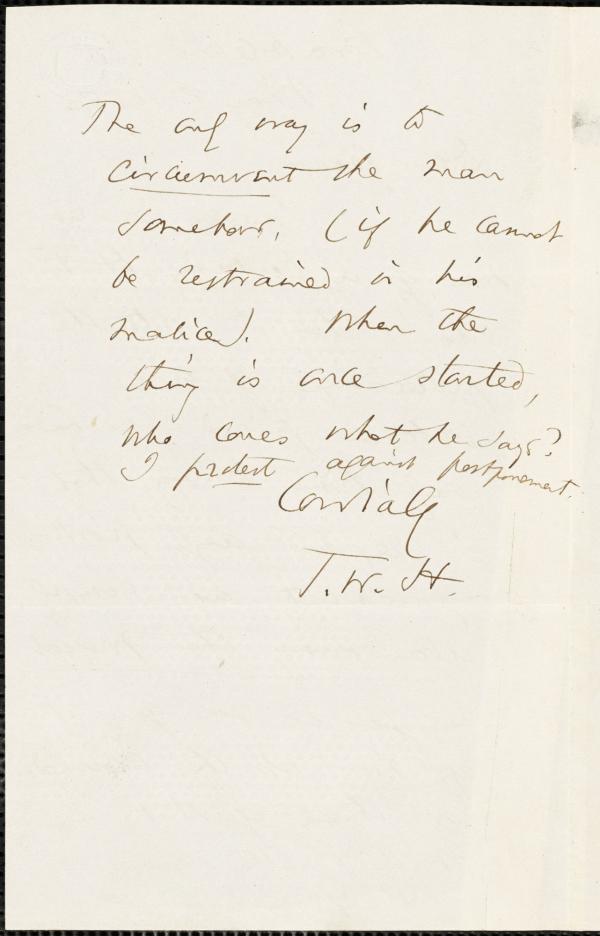 The only way is to
circumvent the man
somehow, (if he cannot
be restrained in his
malice). When the
thing is once started,
who cares what he says?
I protest against postponement.
Cordially
T. W. H.